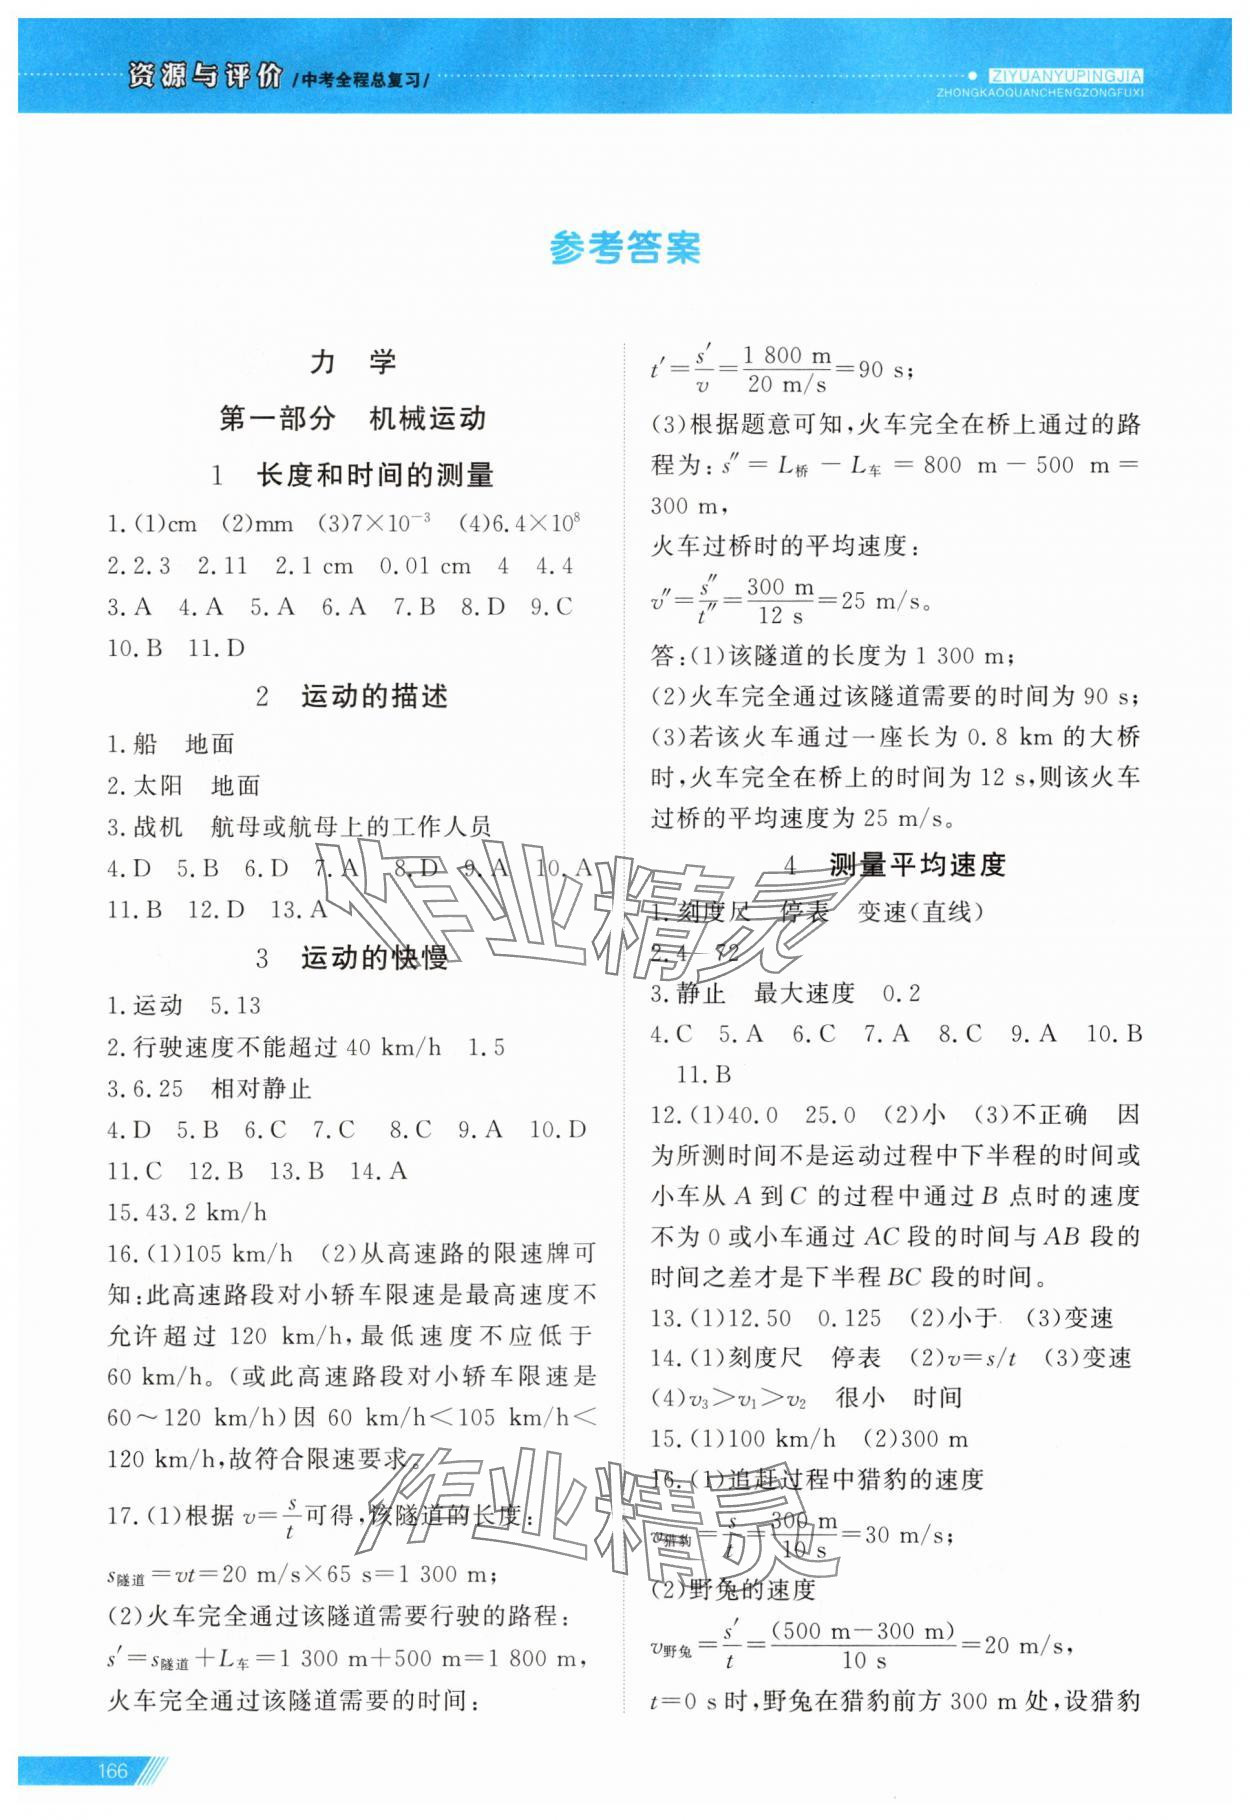 资源与评价 /中考全程总复习/
ZIYUANYUPINGJIA
ZHONGKAOQUANCHENGZONGFUXI
参考答案
力 学
第一部分 机械运动
1 长度和时间的测量
1.(1)cm (2)mm (3)7×10⁻³ (4)6.4×10⁸
2.2.3 2.11 2.1 cm 0.01 cm 4 4.4
3.A 4.A 5.A 6.A 7.B 8.D 9.C
10.B 11.D
2 运动的描述
1.船 地面
2.太阳 地面
3.战机 航母或航母上的工作人员
4.D 5.B 6.D 7.A 8.D 9.A 10.A
11.B 12.D 13.A
3 运动的快慢
1.运动 5.13
2.行驶速度不能超过 40 km/h 1.5
3.6.25 相对静止
4.D 5.B 6.C 7.C 8.C 9.A 10.D
11.C 12.B 13.B 14.A
15.43.2 km/h
16.(1)105 km/h (2)从高速路的限速牌可
知:此高速路段对小轿车限速是最高速度不
允许超过 120 km/h,最低速度不应低于
60 km/h。(或此高速路段对小轿车限速是
60～120 km/h)因 60 km/h＜105 km/h＜
120 km/h,故符合限速要求。
17.(1)根据 v=s/t可得,该隧道的长度:
s隧道=vt=20 m/s×65 s=1 300 m;
(2)火车完全通过该隧道需要行驶的路程:
s′=s隧道+L车=1 300 m+500 m=1 800 m,
火车完全通过该隧道需要的时间:
t′=s′/v=1 800 m/20 m/s=90 s;
(3)根据题意可知,火车完全在桥上通过的路
程为:s″=L桥－L车=800 m－500 m=
300 m,
火车过桥时的平均速度:
v″=s″/t″=300 m/12 s=25 m/s。
答:(1)该隧道的长度为 1 300 m;
(2)火车完全通过该隧道需要的时间为 90 s;
(3)若该火车通过一座长为 0.8 km 的大桥
时,火车完全在桥上的时间为 12 s,则该火车
过桥的平均速度为 25 m/s。
4 测量平均速度
1.刻度尺 停表 变速(直线)
2.4 72
3.静止 最大速度 0.2
4.C 5.A 6.C 7.A 8.C 9.A 10.B
11.B
12.(1)40.0 25.0 (2)小 (3)不正确 因
为所测时间不是运动过程中下半程的时间或
小车从 A 到 C 的过程中通过 B 点时的速度
不为 0 或小车通过 AC 段的时间与 AB 段的
时间之差才是下半程 BC 段的时间。
13.(1)12.50 0.125 (2)小于 (3)变速
14.(1)刻度尺 停表 (2)v=s/t (3)变速
(4)v₃＞v₁＞v₂ 很小 时间
15.(1)100 km/h (2)300 m
16.(1)追赶过程中猎豹的速度
v猎豹=s/t=300 m/10 s=30 m/s;
(2)野兔的速度
v野兔=s′/t=(500 m－300 m)/10 s=20 m/s,
t=0 s 时,野兔在猎豹前方 300 m 处,设猎豹
166
作业精灵
作业精灵